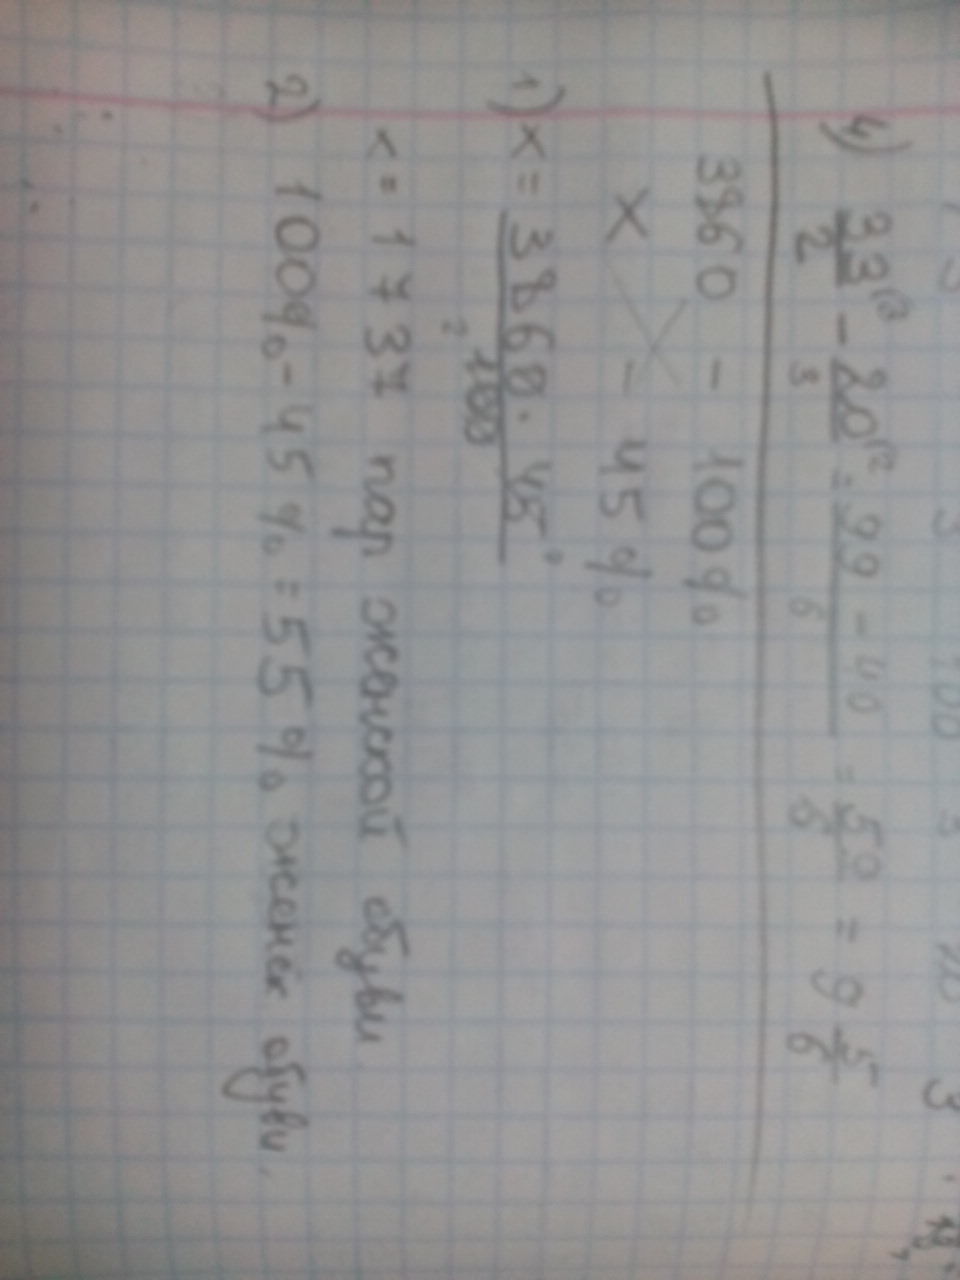 4) 33/2 - 20/3 = 99 - 40/6 = 59/6 = 9 5/6
3860 - 100%
X - 45%
1) x = 3860 · 45 / 100
x = 1737 пар женской обуви
2) 100% - 45% = 55% женск обуви.